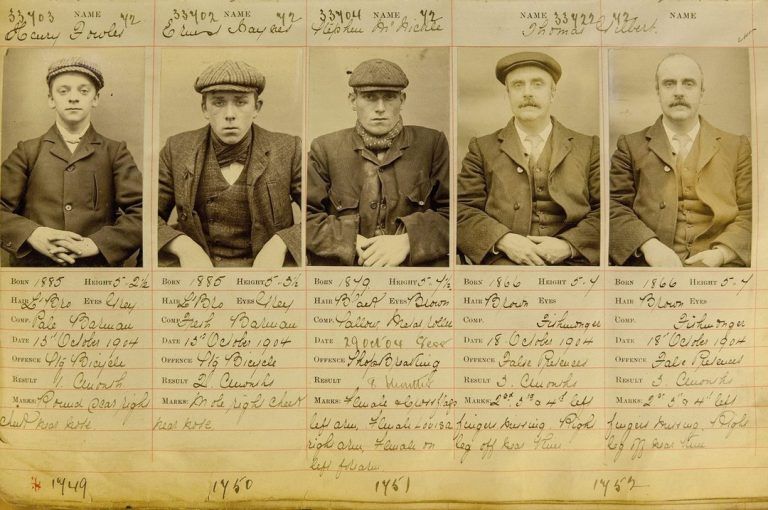 33703 NAME 72
33702 NAME 72
33704 NAME 72
NAME 33722 72
NAME
Henry Fowler
Ernest Haynes
Stephen McNichol
Thomas Gilbert.
BORN 1885 HEIGHT 5-2½
HAIR L Bro EYES Grey
COMP. Pale Barman
DATE 13th October 1904
OFFENCE Stg Bicycle
RESULT 1 Month
MARKS: Round scar right
cheek near nose
1749
BORN 1885 HEIGHT 5-3½
HAIR L Bro EYES Grey
COMP. Fresh Barman
DATE 13th October 1904
OFFENCE Stg Bicycle
RESULT 2 Months
MARKS: Mole right cheek
near nose.
1750
BORN 1879 HEIGHT 5-4½
HAIR EYES Brown
COMP. Sallow
DATE 29 Oct 04
OFFENCE Shop Breaking
RESULT 8 months
MARKS: Female & Cross flags
left arm, Female Louisa
right arm, Female on
left forearm
1751
BORN 1866 HEIGHT 5-4
HAIR Brown EYES
COMP. Fishmonger
DATE 18 October 1904
OFFENCE False Pretences
RESULT 3. Months
MARKS: 2nd 3rd & 4th left
fingers missing. Right
leg off near knee
BORN 1866 HEIGHT 5-4
HAIR Brown EYES
COMP. Fishmonger
DATE 18th October 1904
OFFENCE False Pretences
RESULT 3. Months
MARKS: 2nd 3rd & 4th left
fingers missing, Right
leg off near knee
1752